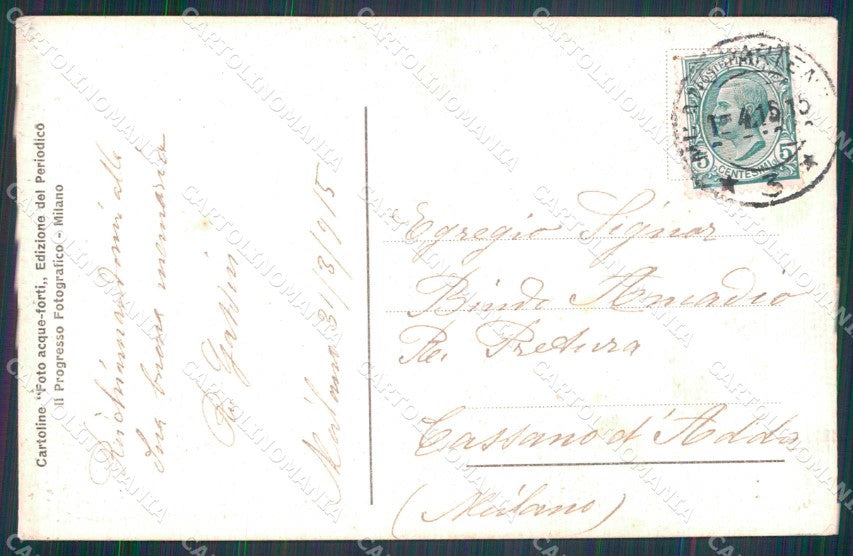 Cartoline "Foto acque-forti,, Edizione del Periodico
Il Progresso Fotografico - Milano
Richiamandomi alla
Sua buona memoria
Milano 31/3/915
POSTE ITALIANE
CENTESIMI 5
MILANO PARTENZA
1-4.15 15
Egregio Signor
Bindo Amadio
R. Pretura
Cassano d'Adda
(Milano)
CARTOLINOMANIA